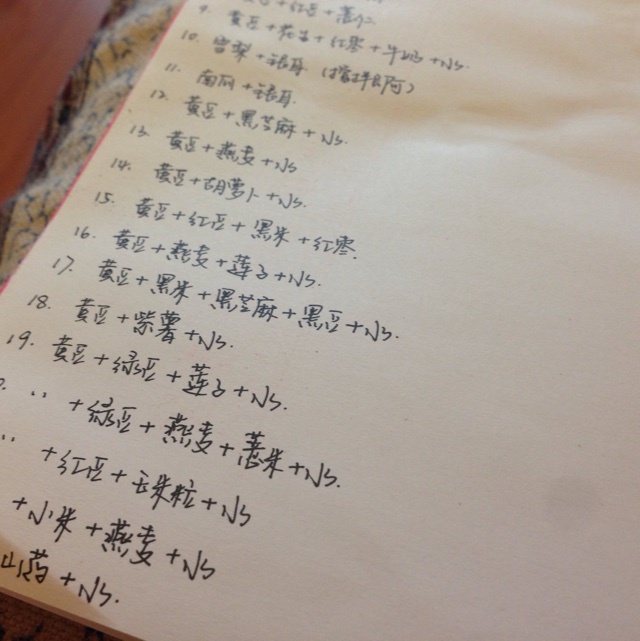 黄豆+红豆+薏仁
9. 黄豆+花生+红枣+牛奶+Ns.
10. 雪梨+银耳
11. 南瓜+银耳.
12. 黄豆+黑芝麻+Ns.
13. 黄豆+燕麦+Ns
14. 黄豆+胡萝卜+Ns.
15. 黄豆+红豆+黑米+红枣.
16. 黄豆+燕麦+莲子+Ns.
17. 黄豆+黑米+黑芝麻+黑豆+Ns.
18. 黄豆+紫薯+Ns.
19. 黄豆+绿豆+莲子+Ns.
" +绿豆+燕麦+薏米+Ns.
" +红豆+玉米粒+Ns
+小米+燕麦+Ns
山药+Ns.